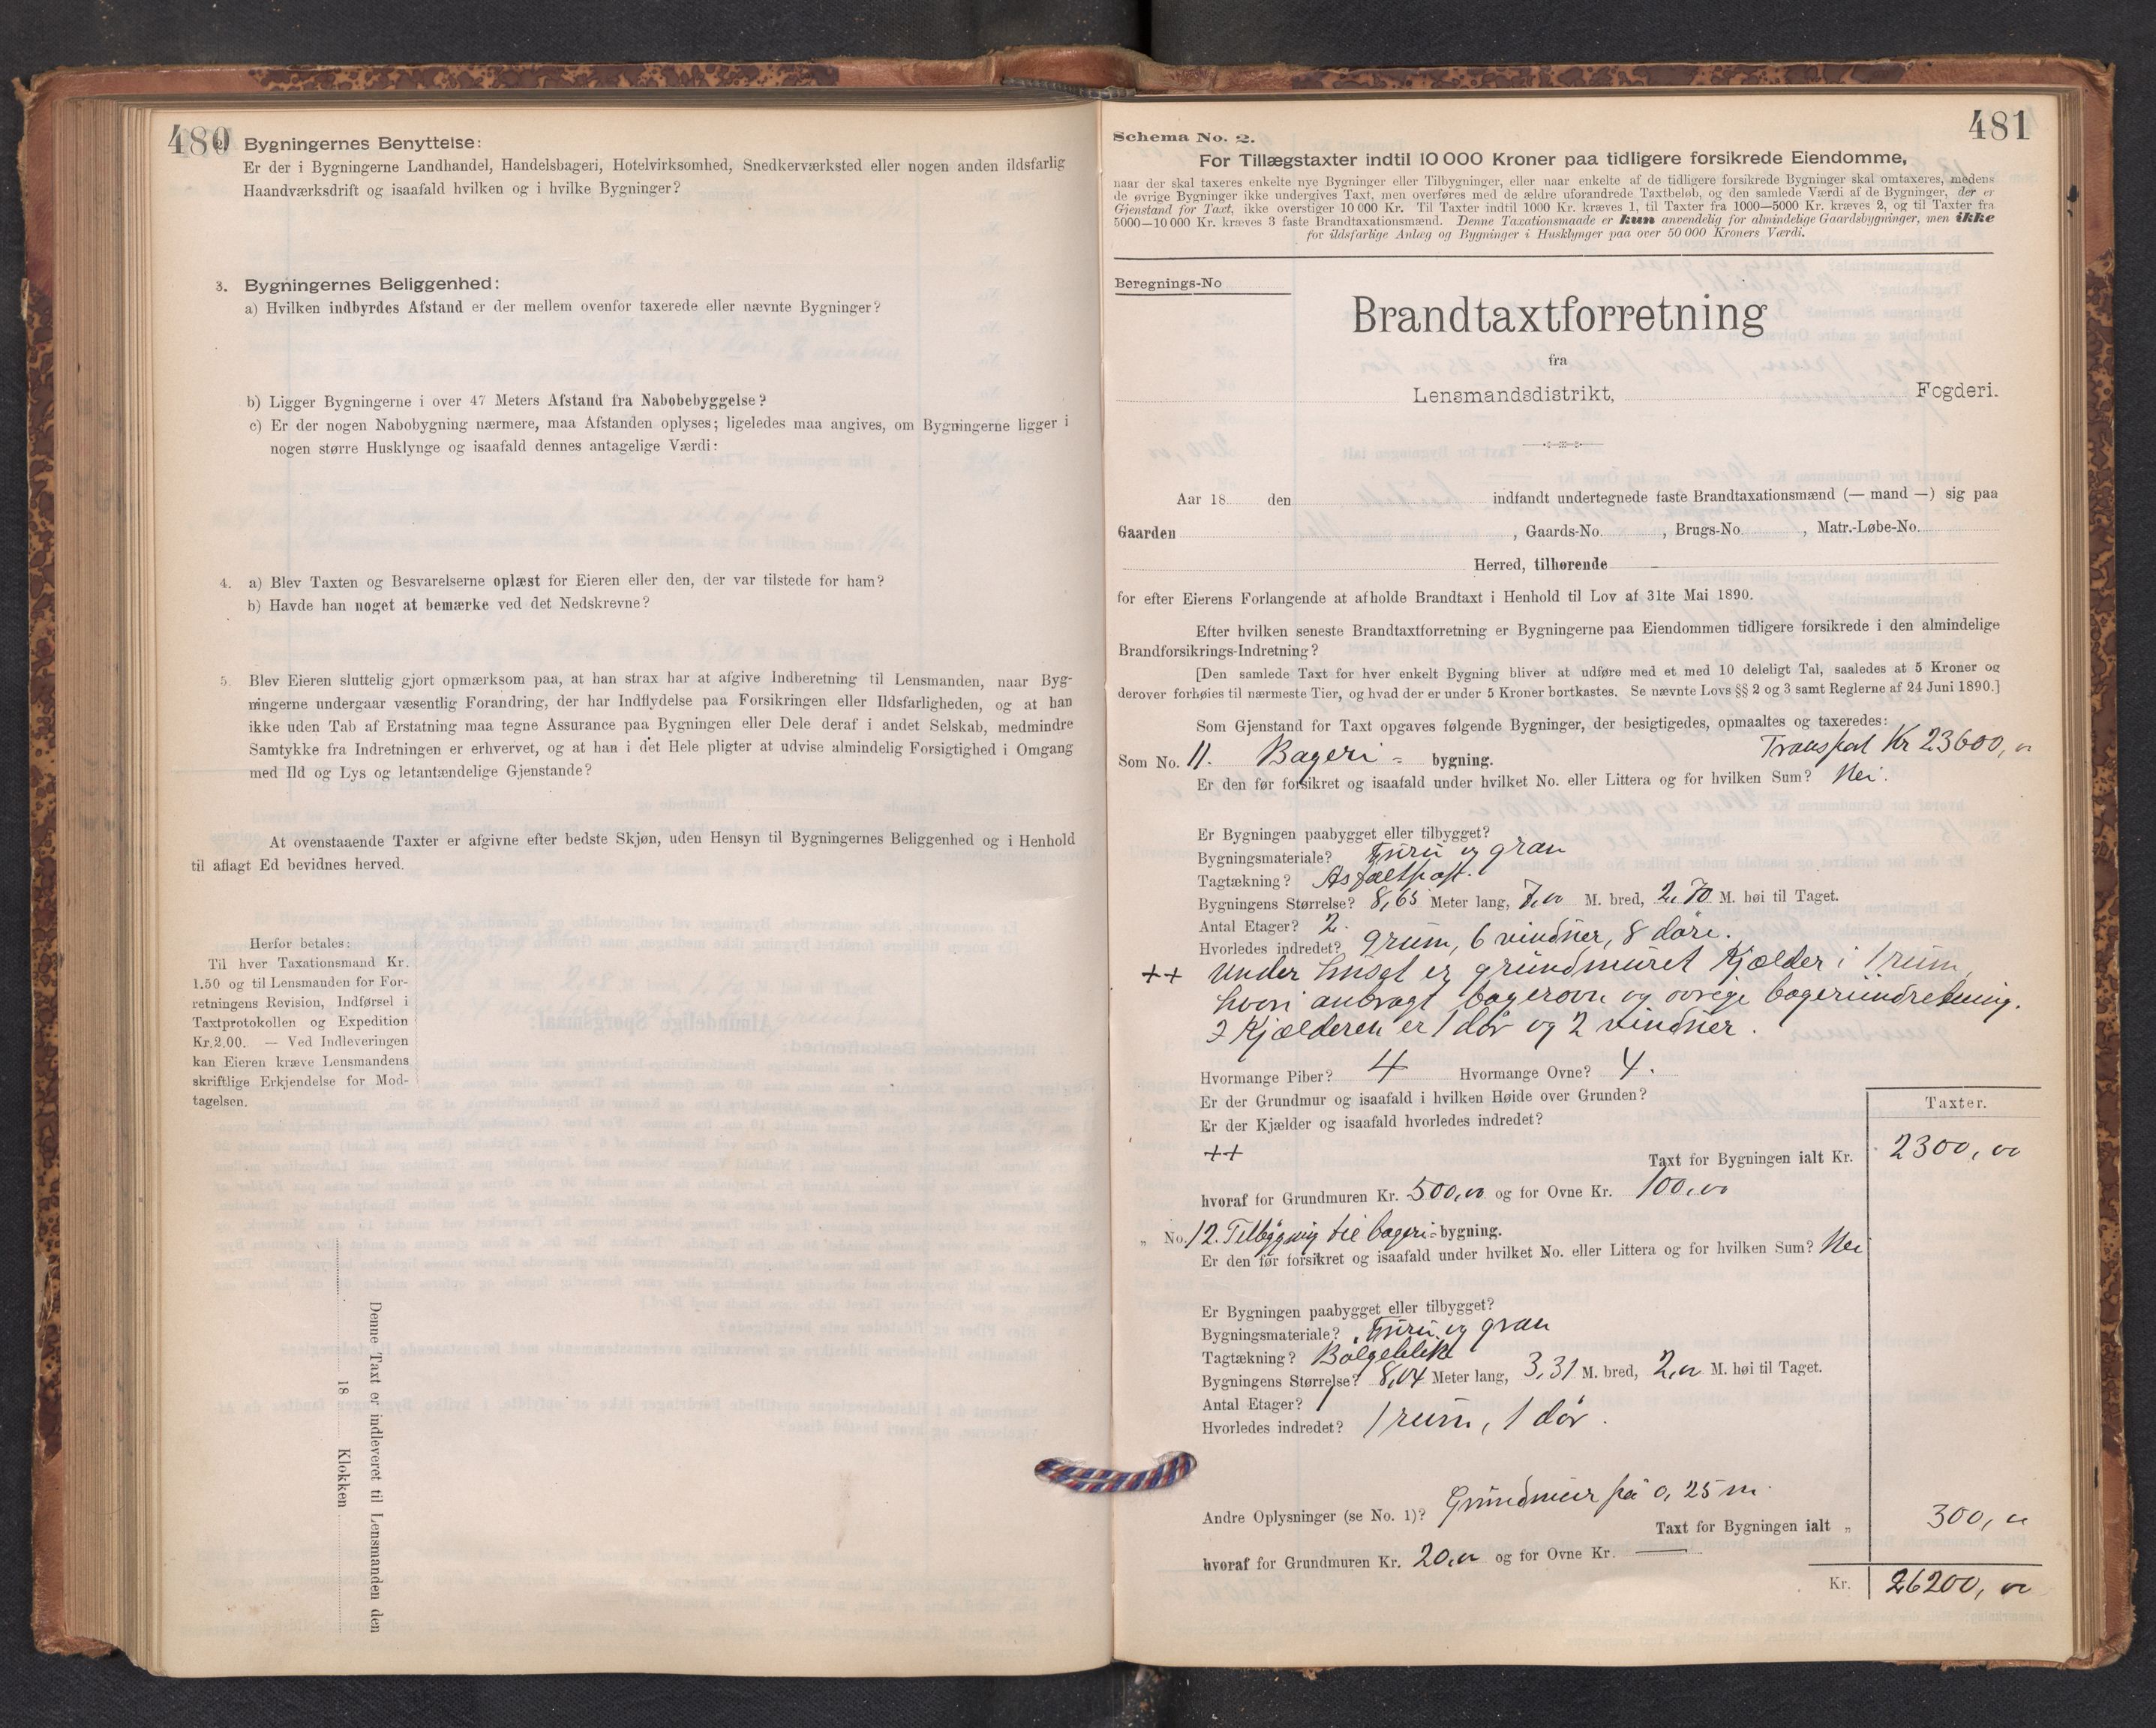 480
2. Bygningernes Benyttelse:
Er der i Bygningerne Landhandel, Handelsbageri, Hotelvirksomhed, Snedkerværksted eller nogen anden ildsfarlig
Haandværksdrift og isaafald hvilken og i hvilke Bygninger?
3. Bygningernes Beliggenhed:
a) Hvilken indbyrdes Afstand er der mellem ovenfor taxerede eller nævnte Bygninger?
b) Ligger Bygningerne i over 47 Meters Afstand fra Nabobebyggelse?
c) Er der nogen Nabobygning nærmere, maa Afstanden oplyses; ligeledes maa angives, om Bygningerne ligger i
nogen større Husklynge og isaafald dennes antagelige Værdi:
4. a) Blev Taxten og Besvarelserne oplæst for Eieren eller den, der var tilstede for ham?
b) Havde han noget at bemærke ved det Nedskrevne?
5. Blev Eieren sluttelig gjort opmærksom paa, at han strax har at afgive Indberetning til Lensmanden, naar Byg-
ningerne undergaar væsentlig Forandring, der har Indflydelse paa Forsikringen eller Ildsfarligheden, og at han
ikke uden Tab af Erstatning maa tegne Assurance paa Bygningen eller Dele deraf i andet Selskab, medmindre
Samtykke fra Indretningen er erhvervet, og at han i det Hele pligter at udvise almindelig Forsigtighed i Omgang
med Ild og Lys og letantændelige Gjenstande?
At ovenstaaende Taxter er afgivne efter bedste Skjøn, uden Hensyn til Bygningernes Beliggenhed og i Henhold
til aflagt Ed bevidnes herved.
Herfor betales:
Til hver Taxationsmand Kr.
1.50 og til Lensmanden for For-
retningens Revision, Indførsel i
Taxtprotokollen og Expedition
Kr. 2.00. — Ved Indleveringen
kan Eieren kræve Lensmandens
skriftlige Erkjendelse for Mod-
tagelsen.
Denne Taxt er indleveret til Lensmanden den
18 Klokken
481
Schema No. 2.
For Tillægstaxter indtil 10 000 Kroner paa tidligere forsikrede Eiendomme,
naar der skal taxeres enkelte nye Bygninger eller Tilbygninger, eller naar enkelte af de tidligere forsikrede Bygninger skal omtaxeres, medens
de øvrige Bygninger ikke undergives Taxt, men overføres med de ældre uforandrede Taxtbeløb, og den samlede Værdi af de Bygninger, der er
Gjenstand for Taxt, ikke overstiger 10 000 Kr. Til Taxter indtil 1000 Kr. kræves 1, til Taxter fra 1000—5000 Kr. kræves 2, og til Taxter fra
5000—10 000 Kr. kræves 3 faste Brandtaxationsmænd. Denne Taxationsmaade er kun anvendelig for almindelige Gaardsbygninger, men ikke
for ildsfarlige Anlæg og Bygninger i Husklynger paa over 50 000 Kroners Værdi.
Beregnings-No
Brandtaxtforretning
fra
Lensmandsdistrikt, Fogderi.
Aar 18 den indfandt undertegnede faste Brandtaxationsmænd (— mand —) sig paa
Gaarden , Gaards-No. , Brugs-No. , Matr.-Løbe-No.
Herred, tilhørende
for efter Eierens Forlangende at afholde Brandtaxt i Henhold til Lov af 31te Mai 1890.
Efter hvilken seneste Brandtaxtforretning er Bygningerne paa Eiendommen tidligere forsikrede i den almindelige
Brandforsikrings-Indretning?
[Den samlede Taxt for hver enkelt Bygning bliver at udføre med et med 10 deleligt Tal, saaledes at 5 Kroner og
derover forhøies til nærmeste Tier, og hvad der er under 5 Kroner bortkastes. Se nævnte Lovs §§ 2 og 3 samt Reglerne af 24 Juni 1890.]
Som Gjenstand for Taxt opgaves følgende Bygninger, der besigtigedes, opmaaltes og taxeredes:
Transport Kr 23600,00
Som No. 11. Bageri - bygning.
Er den før forsikret og isaafald under hvilket No. eller Littera og for hvilken Sum? Nei.
Er Bygningen paabygget eller tilbygget?
Bygningsmateriale? Furu og gran
Tagtækning? Asfaltpap.
Bygningens Størrelse? 8,65 Meter lang, 7,00 M. bred, 2,70 M. høi til Taget.
Antal Etager? 2.
Hvorledes indredet? 9 rum, 6 vinduer, 8 døre.
++ Under huset er grundmuret Kjælder i 1 rum,
hvori anbragt bagerovn og øvrige bageriindretning.
I Kjælderen er 1 dør og 2 vinduer.
Hvormange Piber? 4 Hvormange Ovne? 4.
Er der Grundmur og isaafald i hvilken Høide over Grunden?
Er der Kjælder og isaafald hvorledes indredet?
Taxter.
++ Taxt for Bygningen ialt Kr. 2300,00
hvoraf for Grundmuren Kr. 500,00 og for Ovne Kr. 100,00
„ No. 12. Tilbygning til bageri-bygning.
Er den før forsikret og isaafald under hvilket No. eller Littera og for hvilken Sum? Nei
Er Bygningen paabygget eller tilbygget?
Bygningsmateriale? Furu og gran
Tagtækning? Bølgeblik
Bygningens Størrelse? 8,04 Meter lang, 3,31 M. bred, 2,00 M. høi til Taget.
Antal Etager? 1
Hvorledes indredet? 1 rum, 1 dør.
Andre Oplysninger (se No. 1)? Grundmur på 0,25 m.
Taxt for Bygningen ialt „ 300,00
hvoraf for Grundmuren Kr. 20,00 og for Ovne Kr. —
Kr. 26200,00